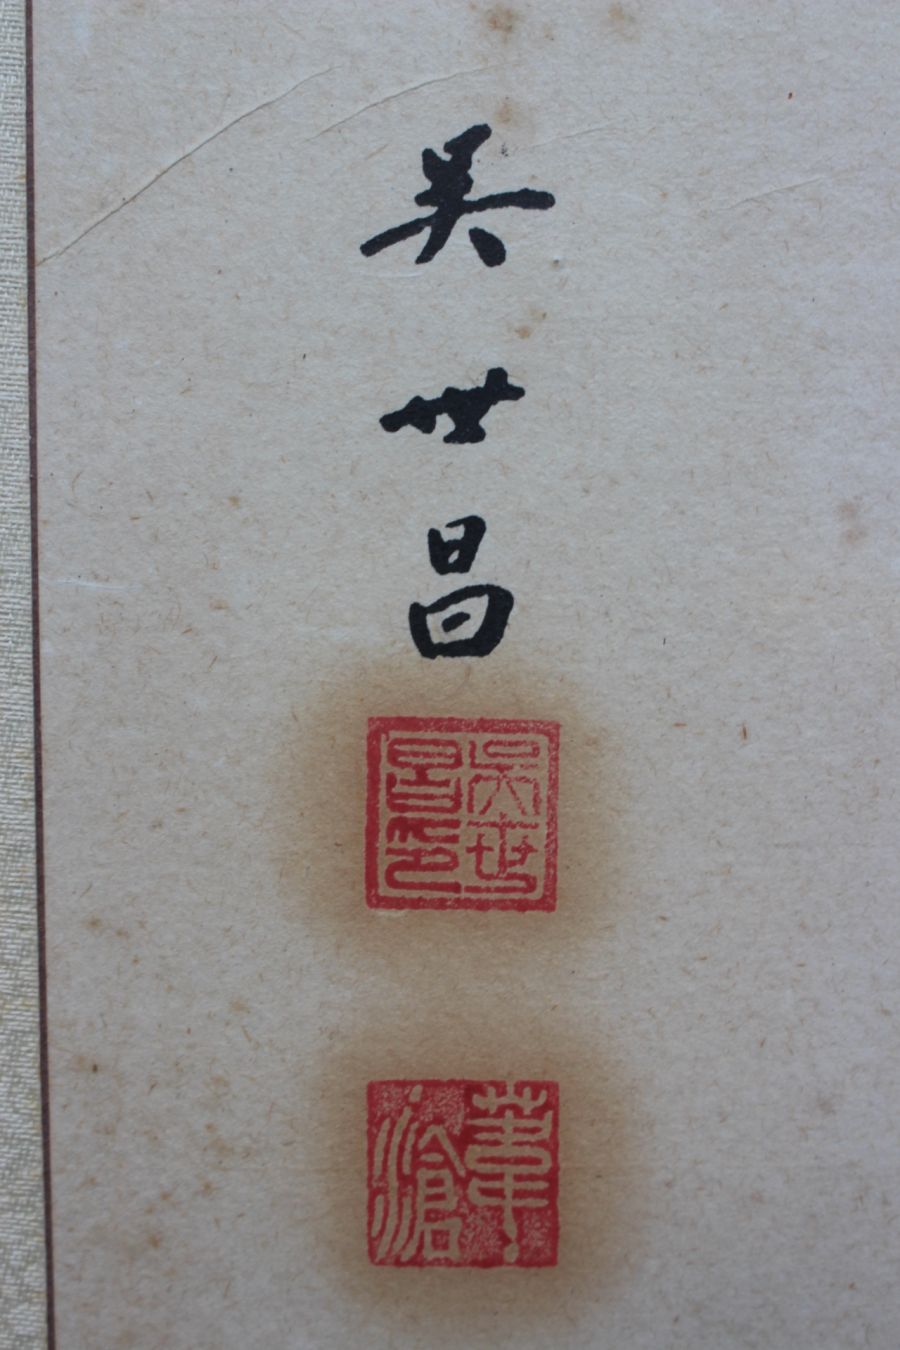 吳世昌
吳世昌印
葦滄